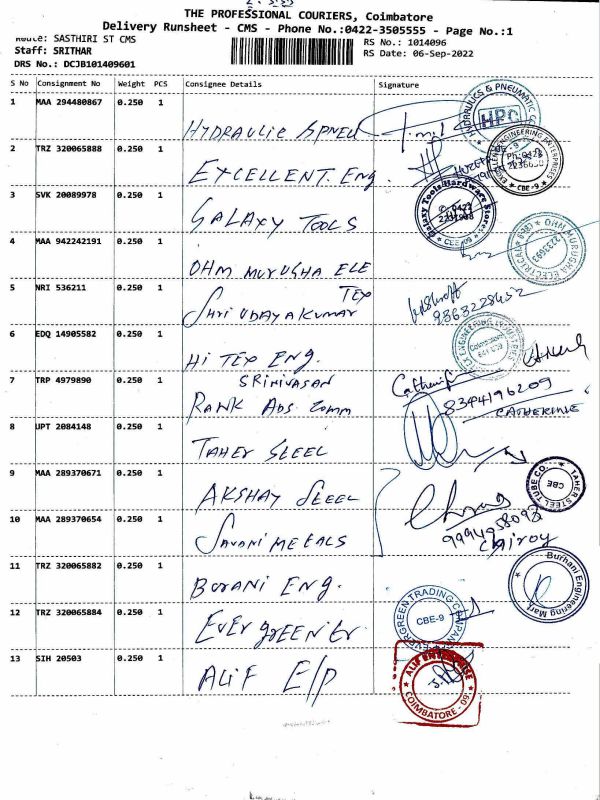 THE PROFESSIONAL COURIERS, Coimbatore
Delivery Runsheet - CMS - Phone No.:0422-3505555 - Page No.:1
Route: SASTHIRI ST CMS
RS No.: 1014096
Staff: SRITHAR
RS Date: 06-Sep-2022
DRS No.: DCJB101409601
S No Consignment No Weight PCS Consignee Details Signature
1 MAA 294480867 0.250 1 HYDRAULIC & PNEU
HYDRAULICS & PNEUMATIC
HPC
2 TRZ 320065888 0.250 1 EXCELLENT. Eng.
EXCELLENT ENGINEERING ENTERPRISES
CBE-9
3 SVK 20089978 0.250 1 GALAXY TOOLS
Galaxy Tools Hardware Stores
CBE-09
4 MAA 942242191 0.250 1 OHM MURUGHA ELE
OHM MURUGHA ELECTRICAL
5 NRI 536211 0.250 1 Shri UDAYAKUMAR TEX
9863228452
6 EDQ 14905582 0.250 1 Hi TEX Eng.
ENGINEERING INDUSTRIES
Coimbatore
7 TRP 4979890 0.250 1 SRINIVASAN
RANK ADS. Comm
8344196209
CATHERINE
8 UPT 2084148 0.250 1 TAHER STEEL
TAHER STEEL TUBE CO.
CBE
9 MAA 289370671 0.250 1 AKSHAY STEEL
10 MAA 289370654 0.250 1 SAVANI METALS
9994958092
11 TRZ 320065882 0.250 1 BURANI Eng.
Burhani Engineering Mart
12 TRZ 320065884 0.250 1 EVERgREEN Tr
EVERGREEN TRADING COMPANY
CBE-9
13 SIH 20503 0.250 1 ALIF E/P
ALIF ENTERPRISE
COIMBATORE - 09